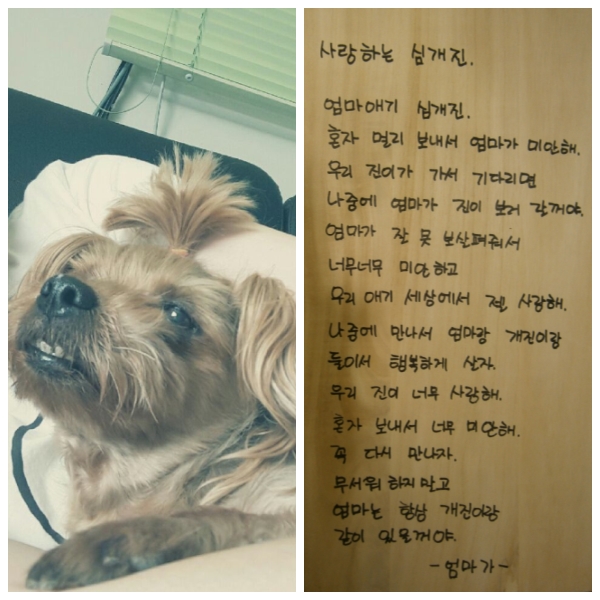 사랑하는 심개진.
엄마애기 심개진.
혼자 멀리 보내서 엄마가 미안해.
우리 진이가 가서 기다리면
나중에 엄마가 진이 보러 갈꺼야.
엄마가 잘 못 보살펴줘서
너무너무 미안하고
우리 애기 세상에서 젤 사랑해.
나중에 만나서 엄마랑 개진이랑
둘이서 행복하게 살자.
우리 진이 너무 사랑해.
혼자 보내서 너무 미안해.
꼭 다시 만나자.
무서워 하지말고
엄마는 항상 개진이랑
같이 있을꺼야.
-엄마가-